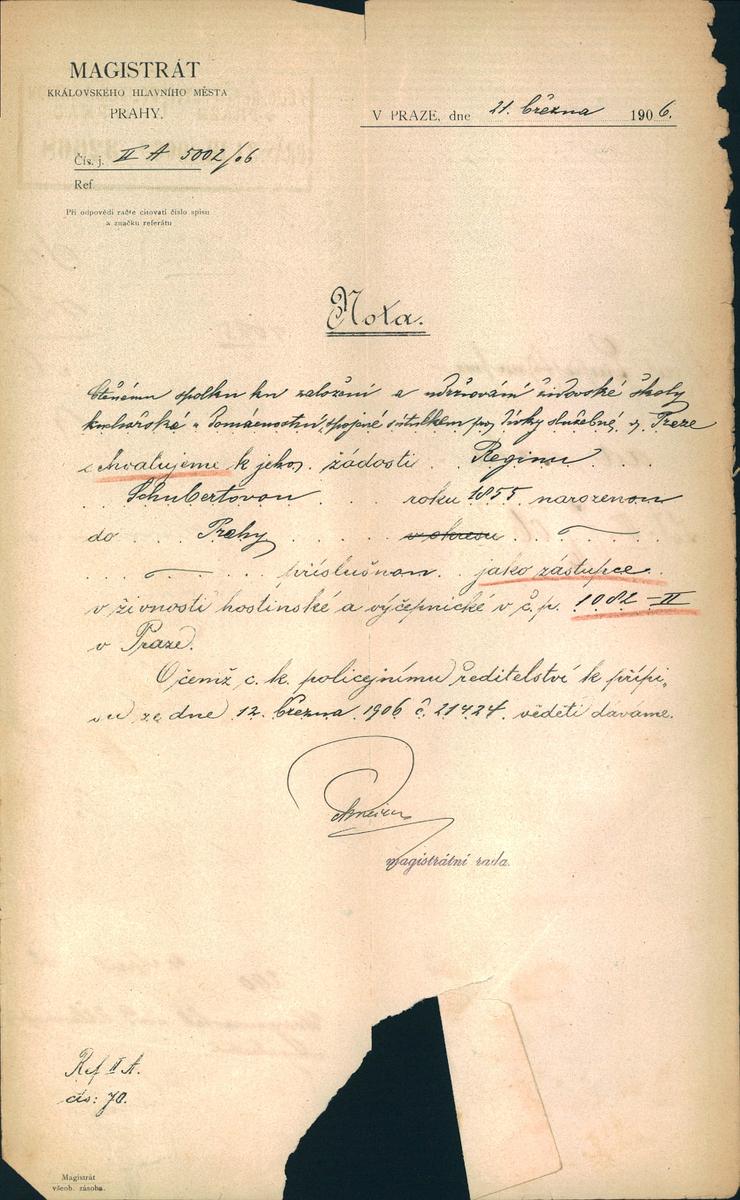 MAGISTRÁT
KRÁLOVSKÉHO HLAVNÍHO MĚSTA
PRAHY.
V PRAZE, dne 21. března 1906.
Čís. j. II A 5002/06
Ref.
Při odpovědi račte citovati číslo spisu
a značku referátu
Nota.
Ctěnému spolku ku založení a udržování židovské školy
kuchařské a domácnostní, spojené s útulkem pro dívky služebné, v Praze
schvalujeme k jeho žádosti Reginu
Schubertovou roku 1855 narozenou
do Prahy v okresu
příslušnou jako zástupce
v živnosti hostinské a výčepnické v č. p. 1082-II
v Praze.
O čemž c. k. policejnímu ředitelství k přípi-
su ze dne 12. března 1906 č. 21424 věděti dáváme.
magistrátní rada.
Ref II A.
čís: 70.
Magistrát
všeob. zásoba.